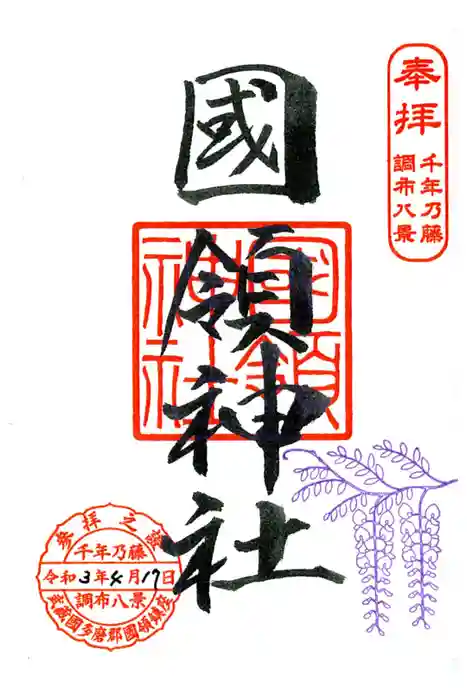 奉拝
千年乃藤
調布八景
國領神社
國領神社
参拝之証
千年乃藤
令和3年4月17日
調布八景
武蔵國多磨郡國領鎮座